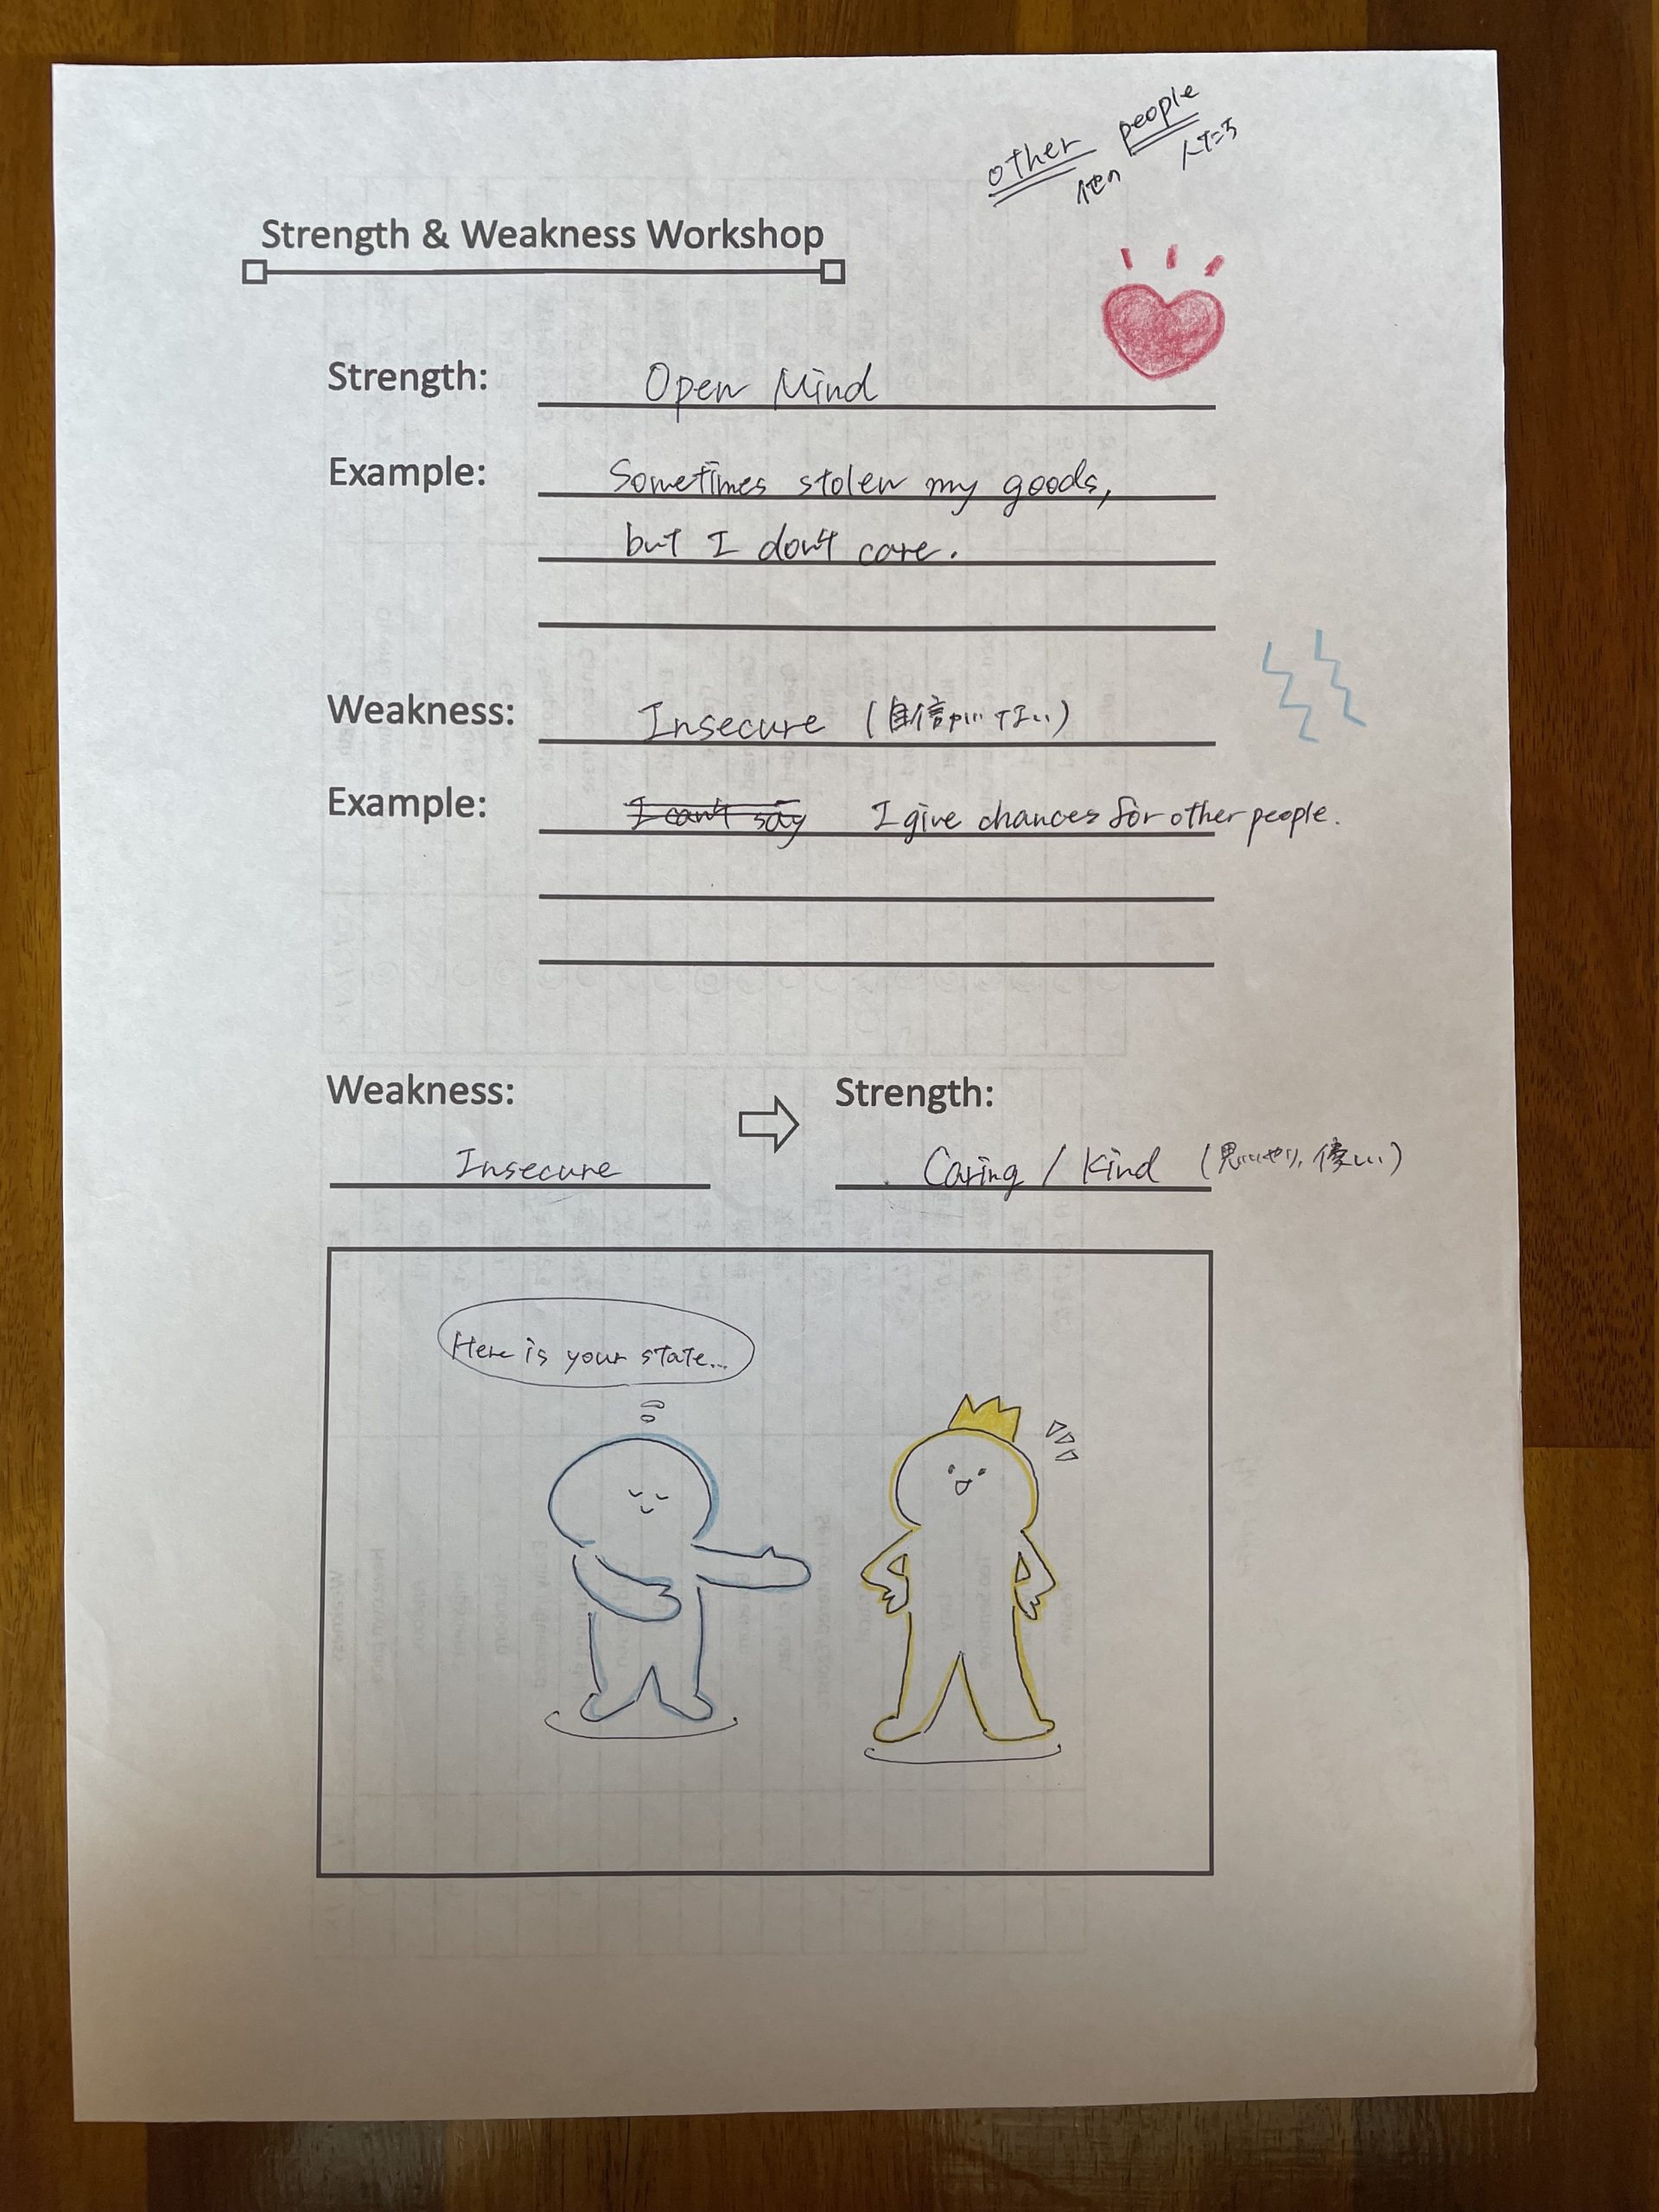 other people
他の 人たち
Strength & Weakness Workshop
Strength: Open Mind
Example: Sometimes stolen my goods,
but I don't care.
Weakness: Insecure (自信がない)
Example: I can't say I give chances for other people.
Weakness: Strength:
Insecure Caring / Kind (思いやり, 優しい)
Here is your state...